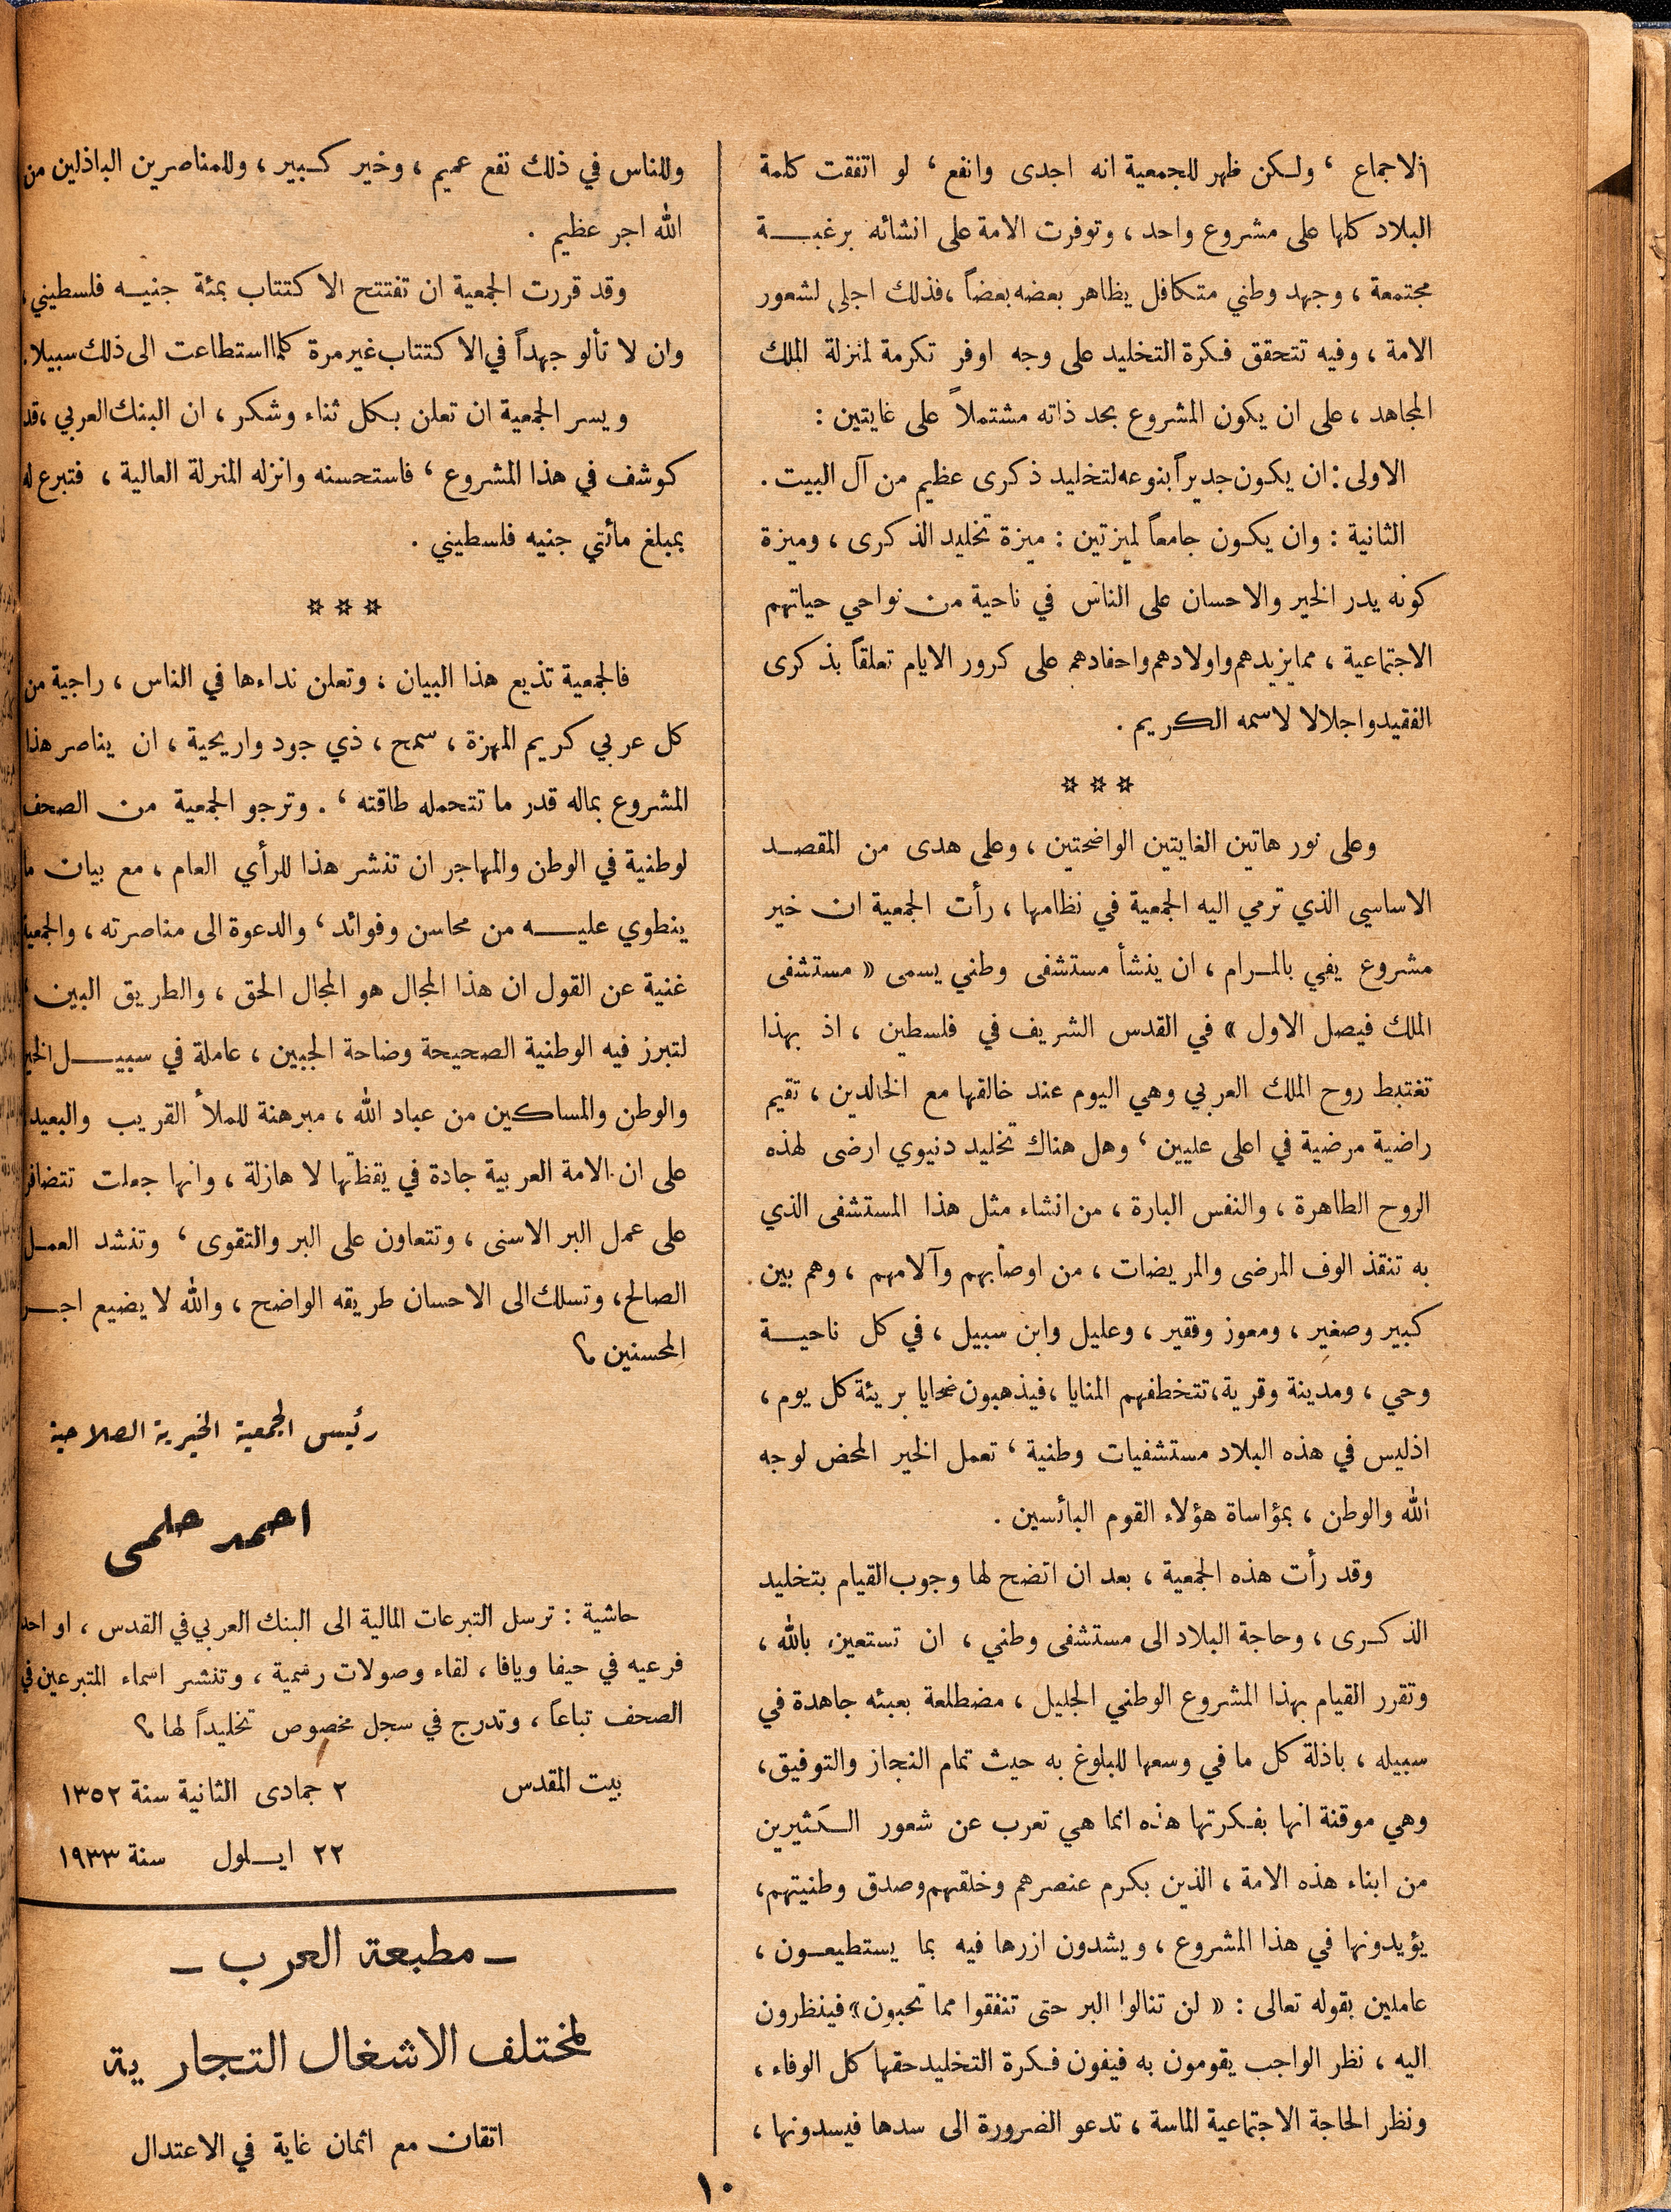 الاجماع ، ولكن ظهر للجمعية انه اجدى وانفع ، لو اتفقت كلمة
البلاد كلها على مشروع واحد ، وتوفرت الامة على انشائه برغبة
مجتمعة ، وجهد وطني متكافل يظاهر بعضه بعضاً ، فذلك اجلى لشعور
الامة ، وفيه تتحقق فكرة التخليد على وجه اوفر تكرمة لمنزلة الملك
المجاهد ، على ان يكون المشروع بحد ذاته مشتملاً على غايتين :
الاولى : ان يكون جديراً بنوعه لتخليد ذكرى عظيم من آل البيت .
الثانية : وان يكون جامعاً لميزتين : ميزة تخليد الذكرى ، وميزة
كونه يدر الخير والاحسان على الناس في ناحية من نواحي حياتهم
الاجتماعية ، مما يزيدهم واولادهم واحفادهم على كرور الايام تعلقاً بذكرى
الفقيد واجلالا لاسمه الكريم .
✡ ✡ ✡
وعلى نور هاتين الغايتين الواضحتين ، وعلى هدى من المقصد
الاساسي الذي ترمي اليه الجمعية في نظامها ، رأت الجمعية ان خير
مشروع يفي بالمرام ، ان ينشأ مستشفى وطني يسمى « مستشفى
الملك فيصل الاول » في القدس الشريف في فلسطين ، اذ بهذا
تغتبط روح الملك العربي وهي اليوم عند خالقها مع الخالدين ، تقيم
راضية مرضية في اعلى عليين ، وهل هناك تخليد دنيوي ارضى لهذه
الروح الطاهرة ، والنفس البارة ، من انشاء مثل هذا المستشفى الذي
به تنقذ الوف المرضى والمريضات ، من اوصابهم وآلامهم ، وهم بين
كبير وصغير ، ومعوز وفقير ، وعليل وابن سبيل ، في كل ناحية
وحي ، ومدينة وقرية ، تتخطفهم المنايا ، فيذهبون ضحايا بريئة كل يوم ،
اذ ليس في هذه البلاد مستشفيات وطنية ، تعمل الخير المحض لوجه
الله والوطن ، بمؤاساة هؤلاء القوم البائسين .
وقد رأت هذه الجمعية ، بعد ان اتضح لها وجوب القيام بتخليد
الذكرى ، وحاجة البلاد الى مستشفى وطني ، ان تستعين بالله ،
وتقرر القيام بهذا المشروع الوطني الجليل ، مضطلعة بعبئه جاهدة في
سبيله ، باذلة كل ما في وسعها للبلوغ به حيث تمام النجاز والتوفيق ،
وهي موقنة انها بفكرتها هذه انما هي تعرب عن شعور الكثيرين
من ابناء هذه الامة ، الذين بكرم عنصرهم وخلقهم وصدق وطنيتهم ،
يؤيدونها في هذا المشروع ، ويشدون ازرها فيه بما يستطيعون ،
عاملين بقوله تعالى : « لن تنالوا البر حتى تنفقوا مما تحبون » فينظرون
اليه ، نظر الواجب يقومون به فيفون فكرة التخليد حقها كل الوفاء ،
ونظر الحاجة الاجتماعية الماسة ، تدعو الضرورة الى سدها فيسدونها ،
وللناس في ذلك نفع عميم ، وخير كبير ، وللمناصرين الباذلين من
الله اجر عظيم .
وقد قررت الجمعية ان تفتتح الاكتتاب بمئة جنيه فلسطيني ،
وان لا تألو جهداً في الاكتتاب غير مرة كلما استطاعت الى ذلك سبيلا .
ويسر الجمعية ان تعلن بكل ثناء وشكر ، ان البنك العربي ، قد
كوشف في هذا المشروع ، فاستحسنه وانزله المنزلة العالية ، فتبرع له
بمبلغ مأتي جنيه فلسطيني .
✡ ✡ ✡
فالجمعية تذيع هذا البيان ، وتعلن نداءها في الناس ، راجية من
كل عربي كريم المهزة ، سمح ، ذي جود واريحية ، ان يناصر هذا
المشروع بماله قدر ما تتحمله طاقته ، . وترجو الجمعية من الصحف
لوطنية في الوطن والمهاجر ان تنشر هذا للرأي العام ، مع بيان ما
ينطوي عليه من محاسن وفوائد ، والدعوة الى مناصرته ، والجمعية
غنية عن القول ان هذا المجال هو المجال الحق ، والطريق البين ،
لتبرز فيه الوطنية الصحيحة وضاحة الجبين ، عاملة في سبيل الخير
والوطن والمساكين من عباد الله ، مبرهنة للملأ القريب والبعيد
على ان الامة العربية جادة في يقظتها لا هازلة ، وانها جعلت تتضافر
على عمل البر الاسنى ، وتتعاون على البر والتقوى ، وتنشد العمل
الصالح ، وتسلك الى الاحسان طريقه الواضح ، والله لا يضيع اجر
المحسنين ؟
رئيس الجمعية الخيرية الصلاحية
احمد حلمى
حاشية : ترسل التبرعات المالية الى البنك العربي في القدس ، او احد
فرعيه في حيفا ويافا ، لقاء وصولات رسمية ، وتنشر اسماء المتبرعين في
الصحف تباعاً ، وتدرج في سجل مخصوص تخليداً لها ؟
بيت المقدس ٢ جمادى الثانية سنة ١٣٥٢
٢٢ ايلول سنة ١٩٣٣
ـ مطبعة العرب ـ
لمختلف الاشغال التجارية
اتقان مع اثمان غاية في الاعتدال
١٠